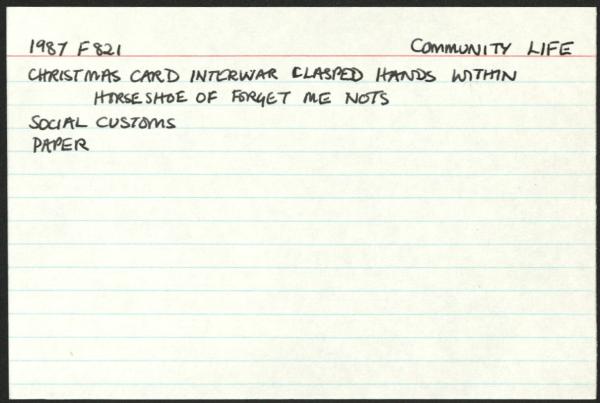 1987 F821 COMMUNITY LIFE
CHRISTMAS CARD INTERWAR CLASPED HANDS WITHIN
HORSESHOE OF FORGET ME NOTS
SOCIAL CUSTOMS
PAPER